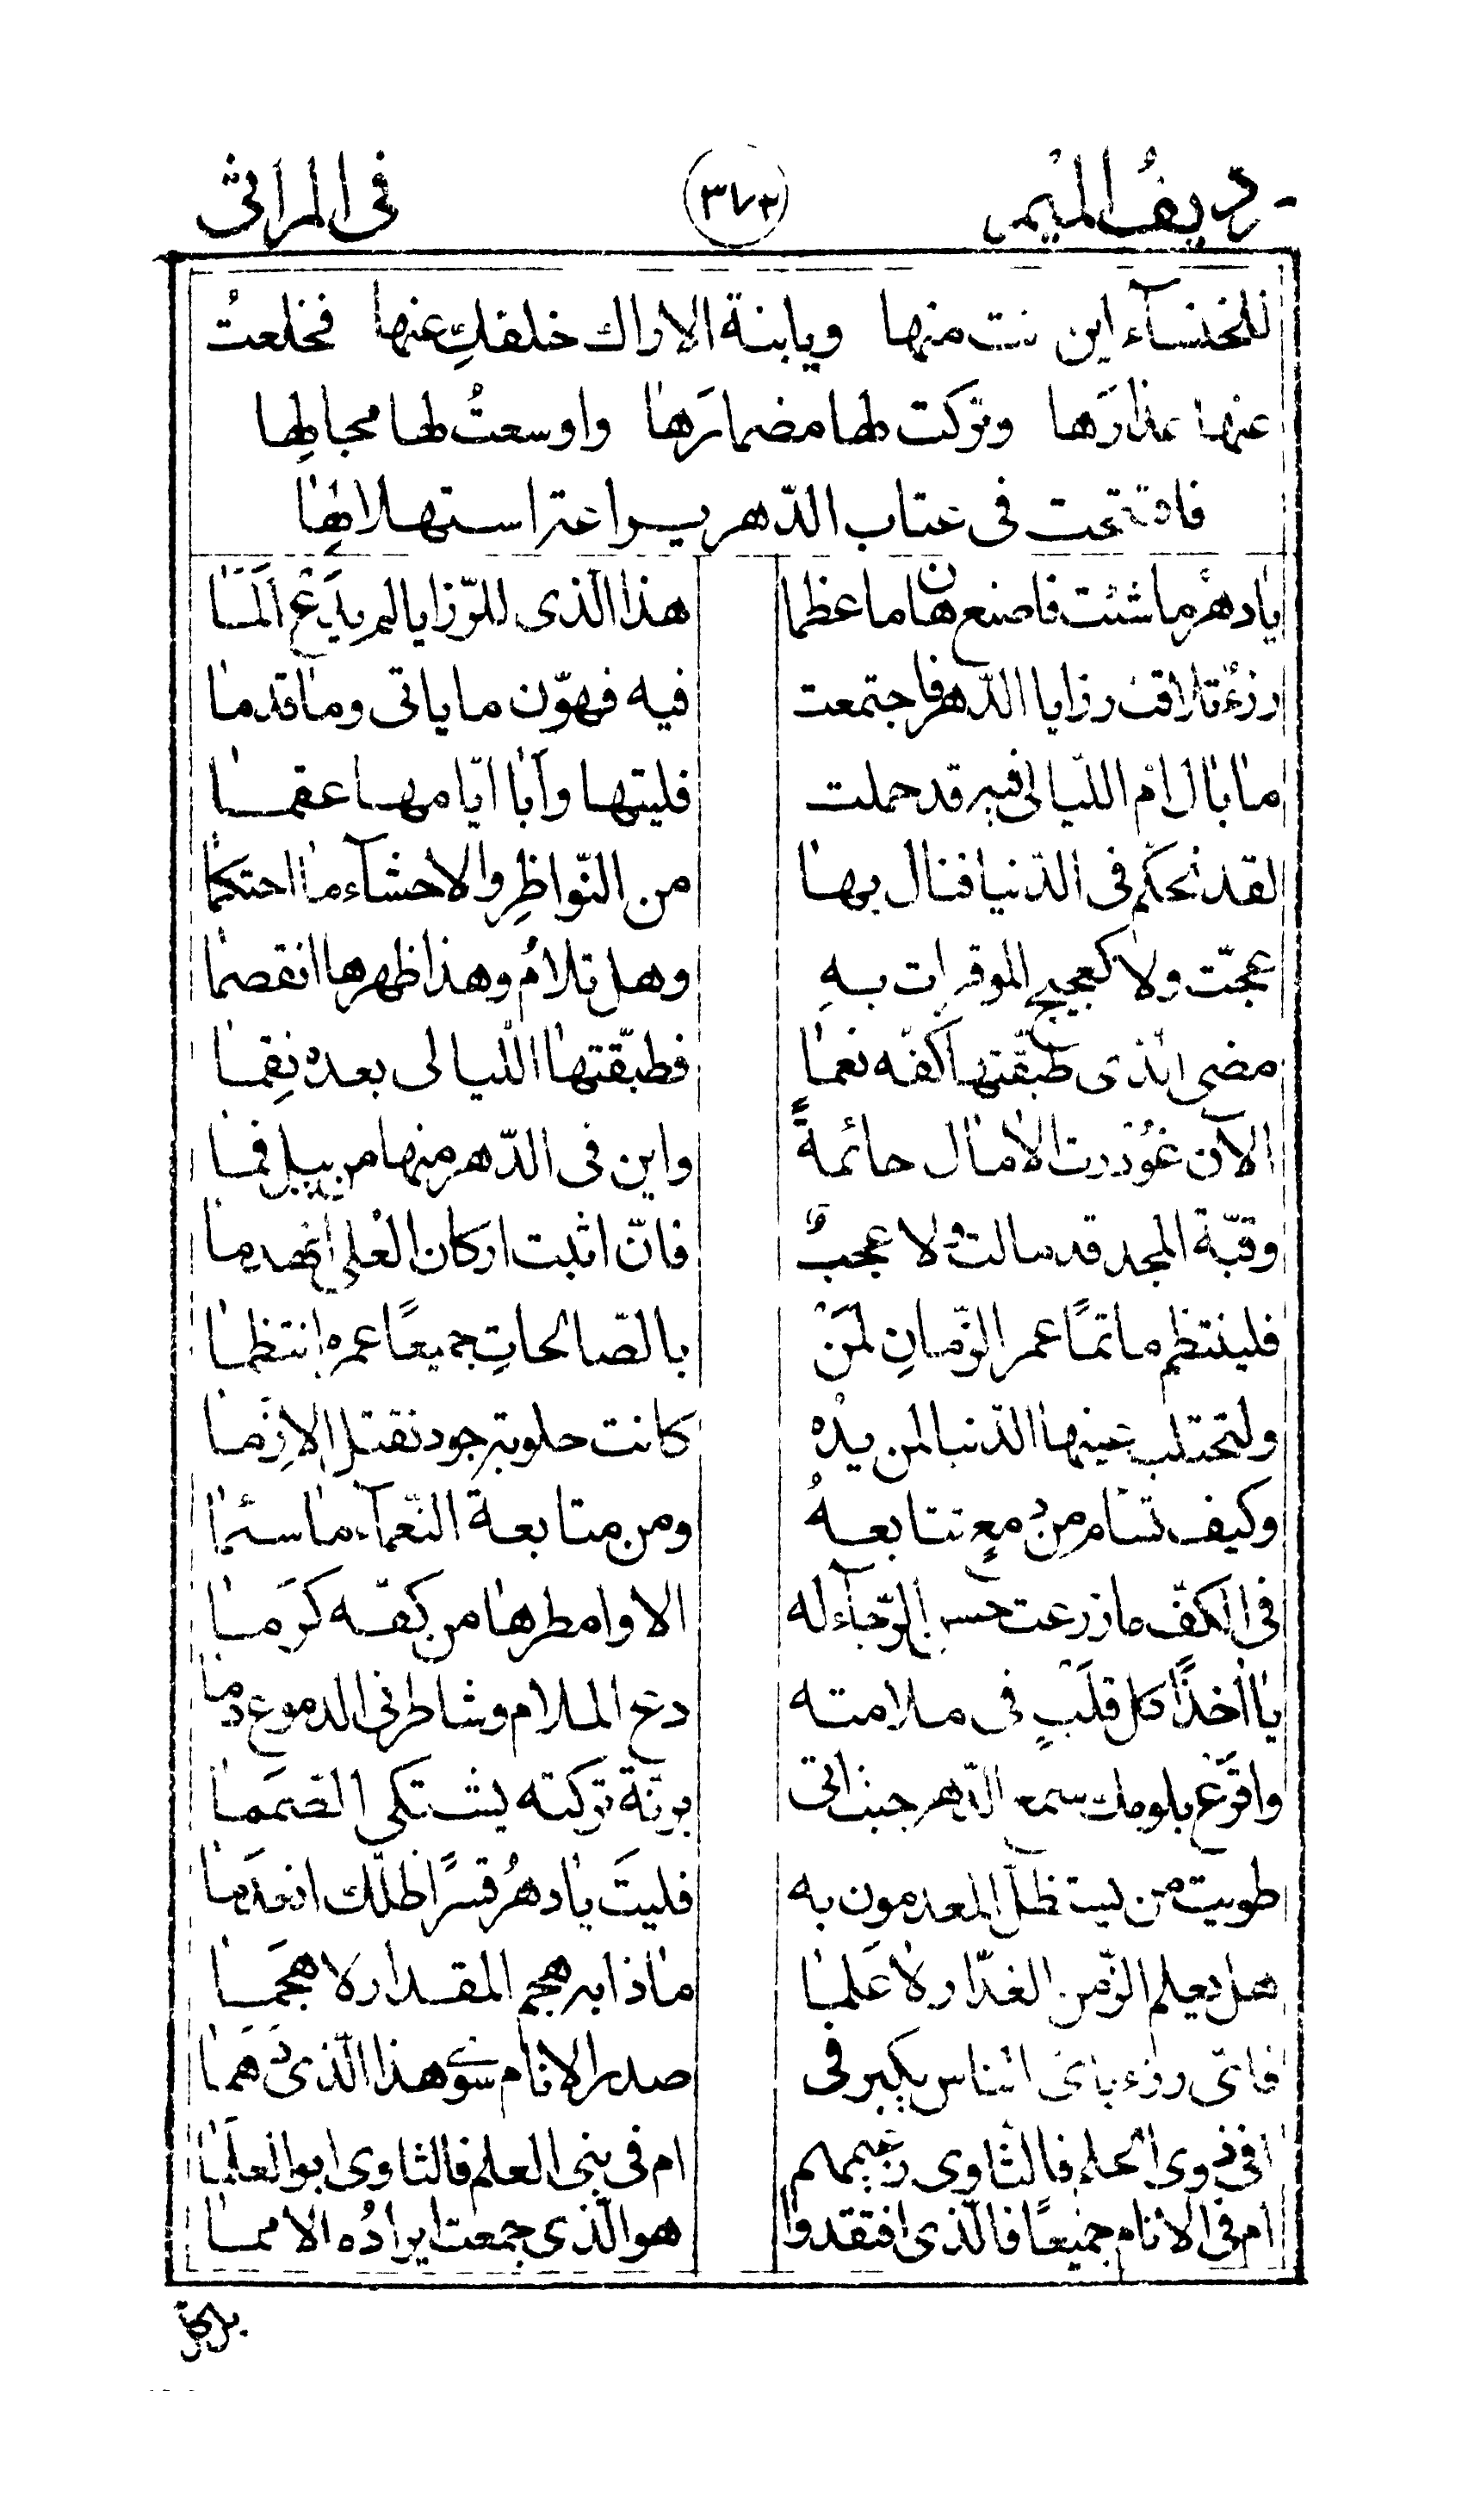 رديفُ الميم ٣٧٣ فى المراثى
للخنسآء اين نت منها ويابنة الاراك خلفكِ عنها فخلعتُ
عنها عذارَها وتركت لها مضمارَها واوسعتُ لها مجالها
فافتتحت فى عتاب الدّهر ببراعة استهلالها
يا دهرُ ما شئت فاصنع هان ما عظما هذا الّذى للرّزايا لم يدَع المَا
رزءٌ تلاقت رزايا الدّهر فاجتمعت فيه فهوّن ما ياتى وما قدما
ما بال امّ اللّيالى فيه قد حملت فليتها وابا ايّامها عقما
لقد تحكّم فى الدّنيا فنال بها من النّواظِر والاحشآء ما احتكما
عجّت ولا كعجيج الموقرات بهِ وهل تلامُ وهذا ظهرها انقصما
مضى الّذى طبّقتها كفّه نعما فطبّقتها اللّيالى بعده نِقما
الآن غُودرت الامال حائمةً واين فى الدّهر منها من يبلّ فما
وقبّة المجد قد سالت ولا عجبٌ فانّ اثبت اركان العُلى انهدما
فلينتظم ماتمًا عمر الزّمانِ لمَنْ بالصّالحاتِ جميعًا عمره انتظما
ولتحتلب عينها الدّنيا لمن يدُه كانت حلوبة جود تقتل الازما
وكيف تسام من دمعٍ تتابعهُ ومن متابعة النّعمآء ما سئما
فى الكفّ ما زرعت حسن الرّجآء له الا وامطرها من كفّه كرَما
يا اخذًا كل قلبٍ فى ملامته دع الملام وشاطرنى الدموع دما
واقرَع بلومك سمع الدّهر حيث اتى برنّة تركته يشتكى الصّممَا
طويت من ليت ظلّ المعدمون به فليتَ يا دهرُ قسرًا ظلّك انعدما
هل يعلم الزّمن الغدّار لا عَلما ماذا به هجم المقدار لا هجمَا
فاىّ رزء باىّ النّاس يكبر فى صدر الانام سوى هذا الّذى دَهما
افى ذوى الحلم فالثّاوى زعيمهم ام فى بنى العلم فالثاوى ابو العلَما
ام فى الانام جميعًا فالّذى افتقدوا هو الّذى جمعت ابرادُه الامما